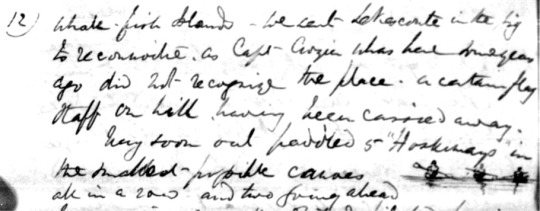 12) Whale-fish Islands - We sent Le Vesconte in the gig
to reconnoitre. as Capt Crozier who was here some years
ago did not recognize the place. a certain flag
staff on hill having been carried away.
Very soon out paddled 5 "Huskimays" in
the smallest-possible canoes
all in a row and two going ahead